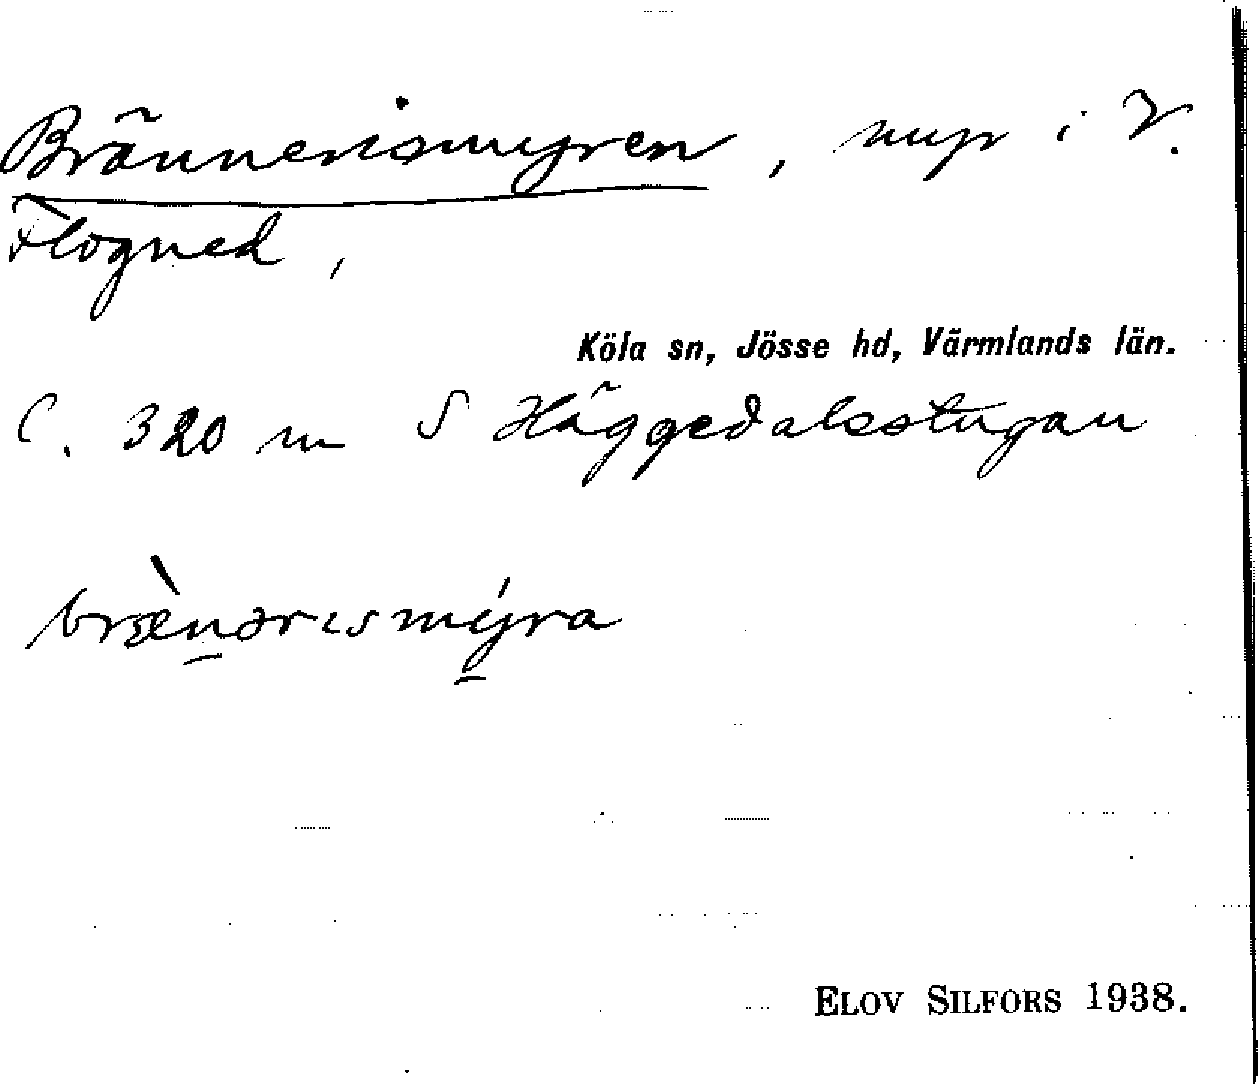 Brännerismyren, myr i V.
Flogned,
Köla sn, Jösse hd, Värmlands län.
C. 320 m S Häggedalsstugan
bræ̀nərɪsmýra
ELOV SILFORS 1938.